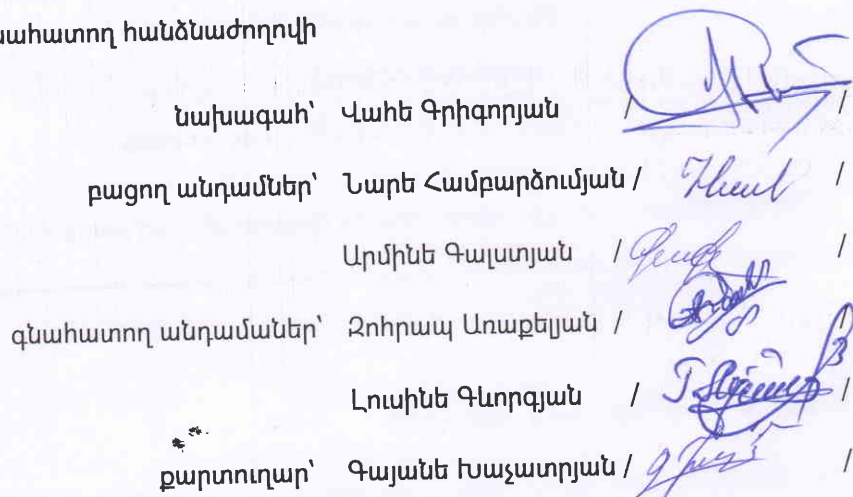 նահատող հանձնաժողովի
նախագահ՝ Վահե Գրիգորյան / /
բացող անդամներ՝ Նարե Համբարձումյան / /
Արմինե Գալստյան / /
գնահատող անդամաներ՝ Զոհրապ Առաքելյան / /
Լուսինե Գևորգյան / /
քարտուղար՝ Գայանե Խաչատրյան / /